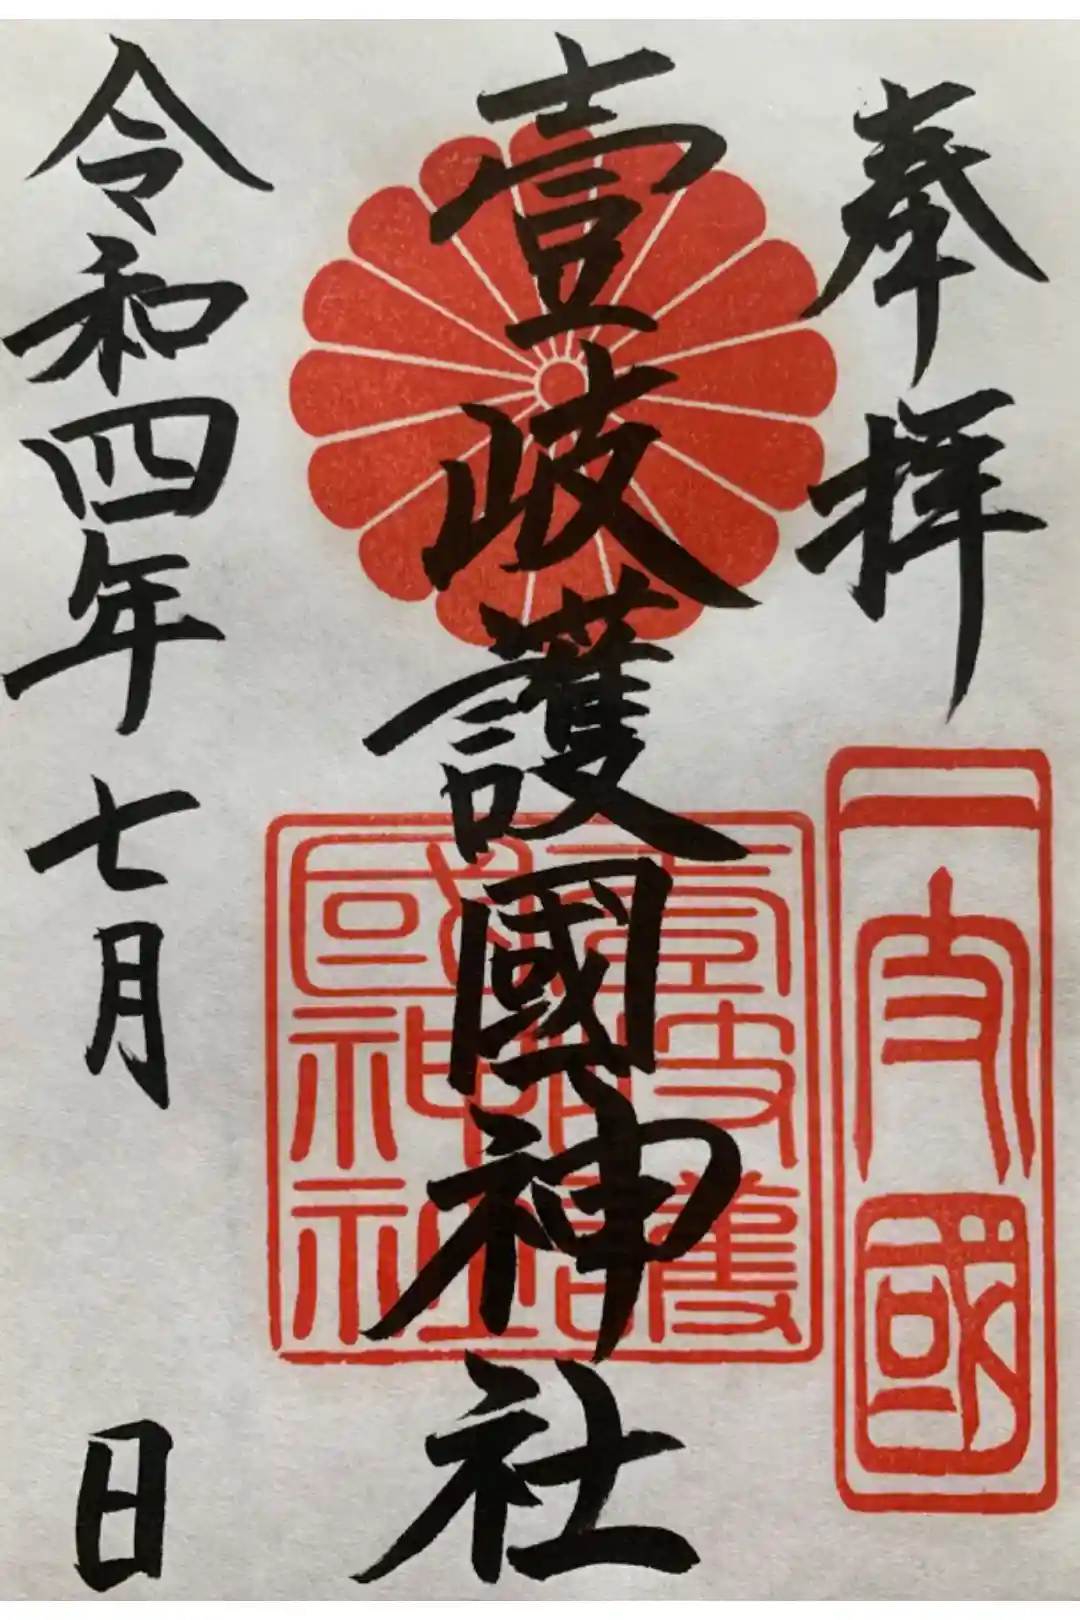 奉拝
一支國
壹岐護國神社
壹岐護國神社
令和四年七月 日